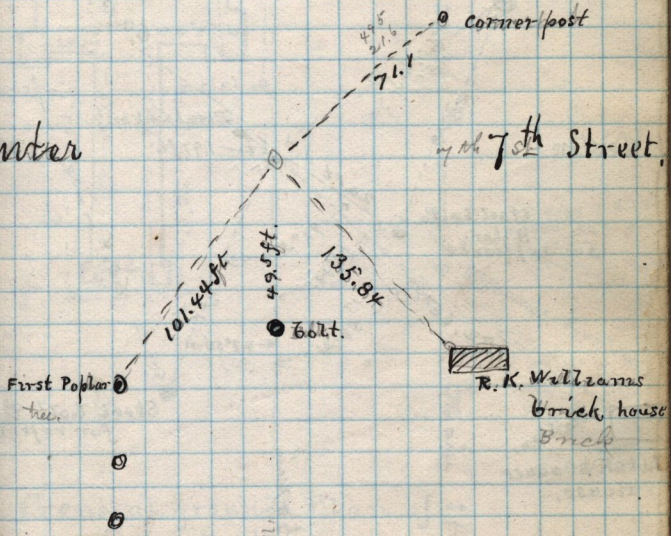 corner post
49.5
21.6
71.1
nter
7th St
7th Street.
101.44 ft
49.5 ft.
135.84
bolt.
First Poplar
tree.
R. K. Williams
brick house
Brick